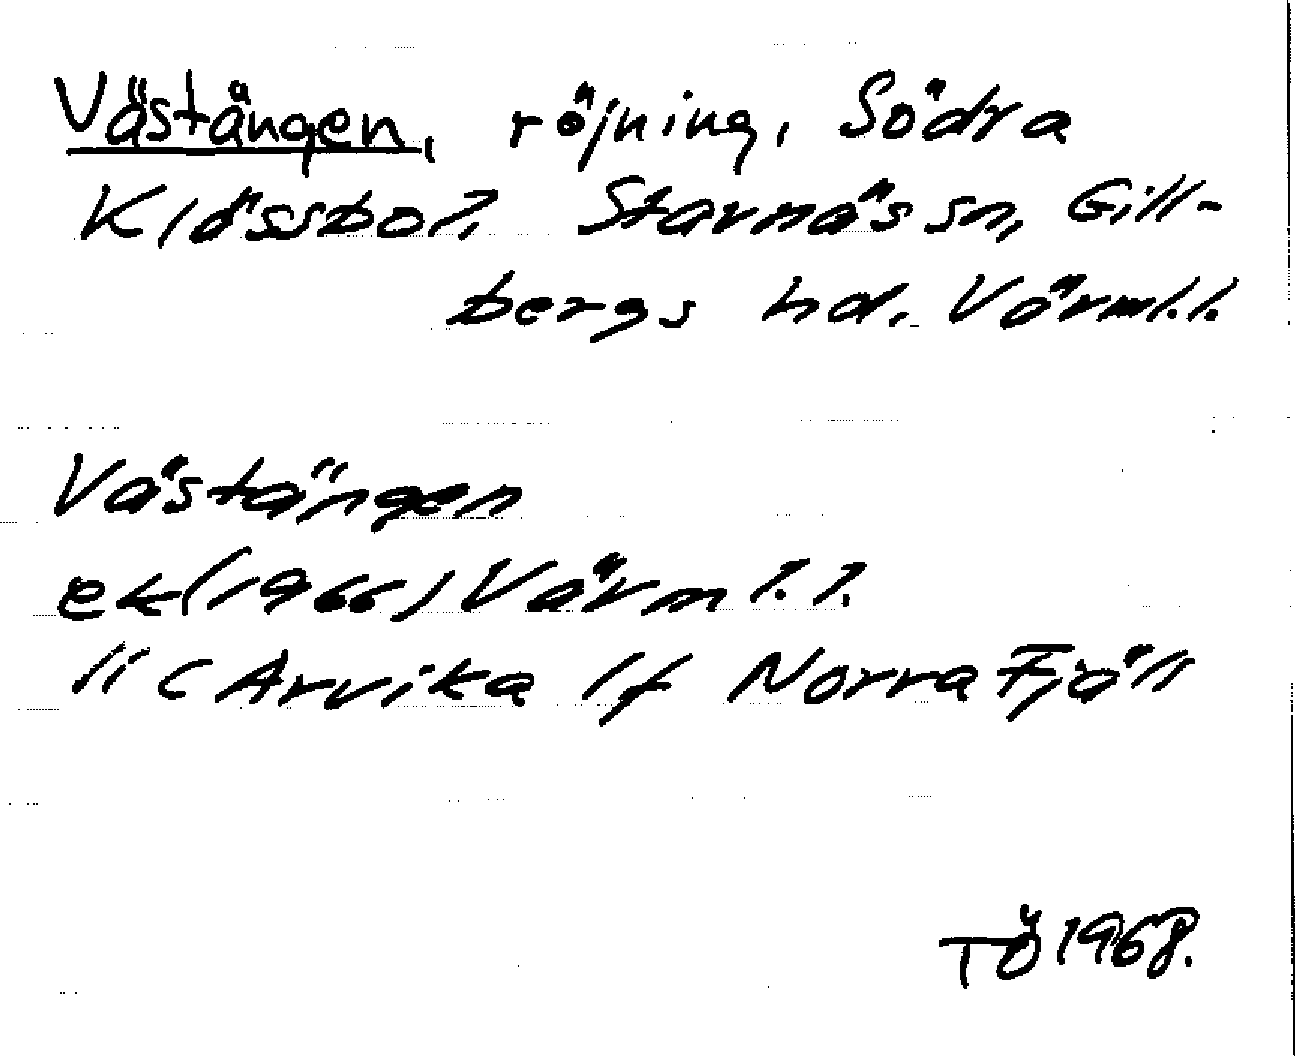 Västängen, röjning, Södra
Klässbol, Stavnäs sn, Gill-
bergs hd. Värml.l.
Västängen
ek (1966) Värm l. l.
11 C Arvika 1f Norra Fjöll
TÖ 1968.